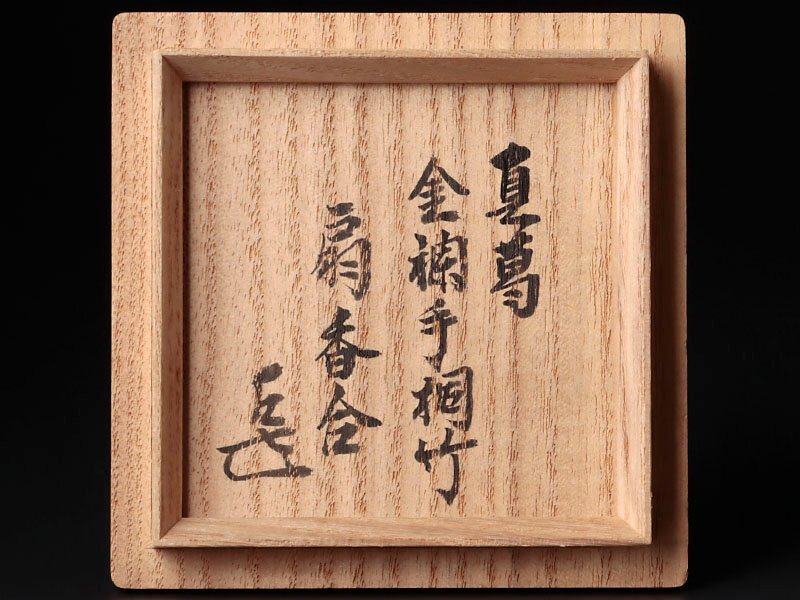 真葛
金襴手桐竹
扇香合